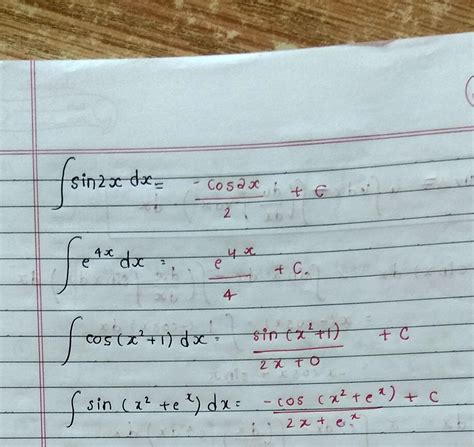 ∫ sin2x dx = -cos2x/2 + c
∫ e^4x dx = e^4x/4 + c.
∫ cos(x²+1) dx = sin(x²+1)/2x+0 + c
∫ sin(x²+e^x) dx = -cos(x²+e^x)/2x+e^x + c